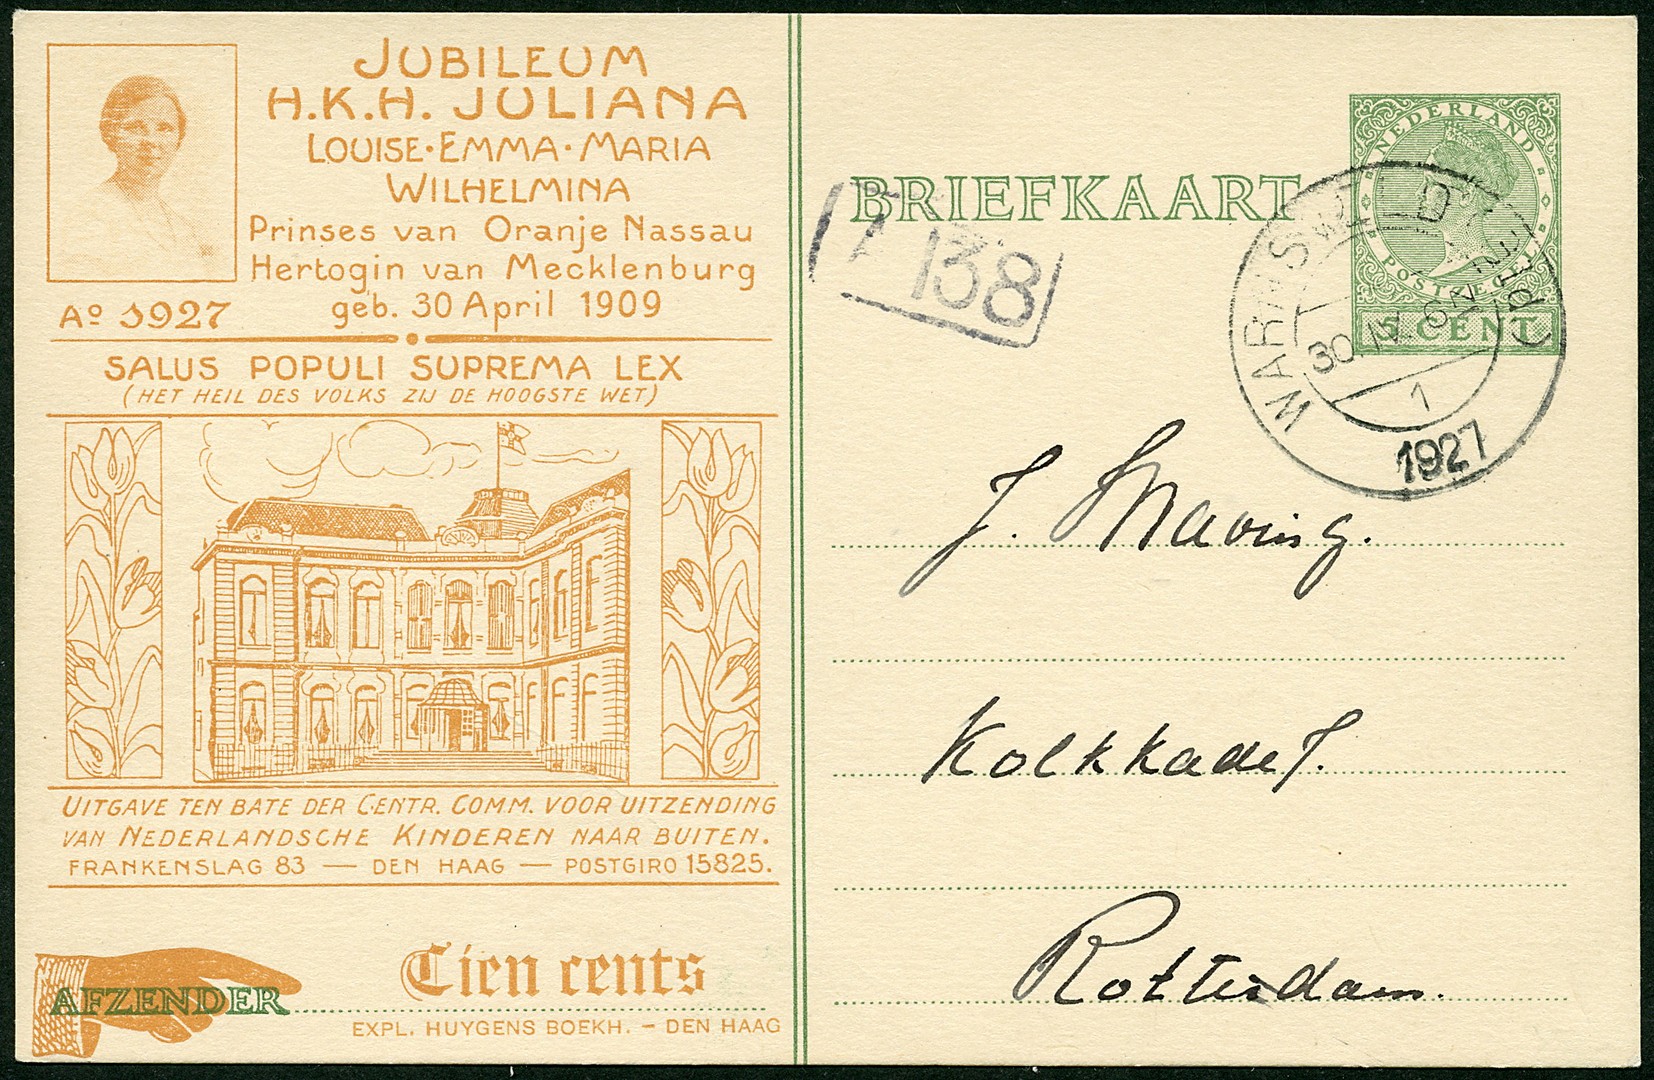 JUBILEUM
H.K.H. JULIANA
LOUISE·EMMA·MARIA
WILHELMINA
Prinses van Oranje Nassau
Hertogin van Mecklenburg
geb. 30 April 1909
Aº 1927
SALUS POPULI SUPREMA LEX
(HET HEIL DES VOLKS ZIJ DE HOOGSTE WET)
UITGAVE TEN BATE DER CENTR. COMM. VOOR UITZENDING
VAN NEDERLANDSCHE KINDEREN NAAR BUITEN.
FRANKENSLAG 83 — DEN HAAG — POSTGIRO 15825.
Tien cents
AFZENDER
EXPL. HUYGENS BOEKH. – DEN HAAG
BRIEFKAART
138
NEDERLAND
POSTZEGEL
5 CENT
30.IV
1
1927
J.
Kolkkade
Rotterdam.